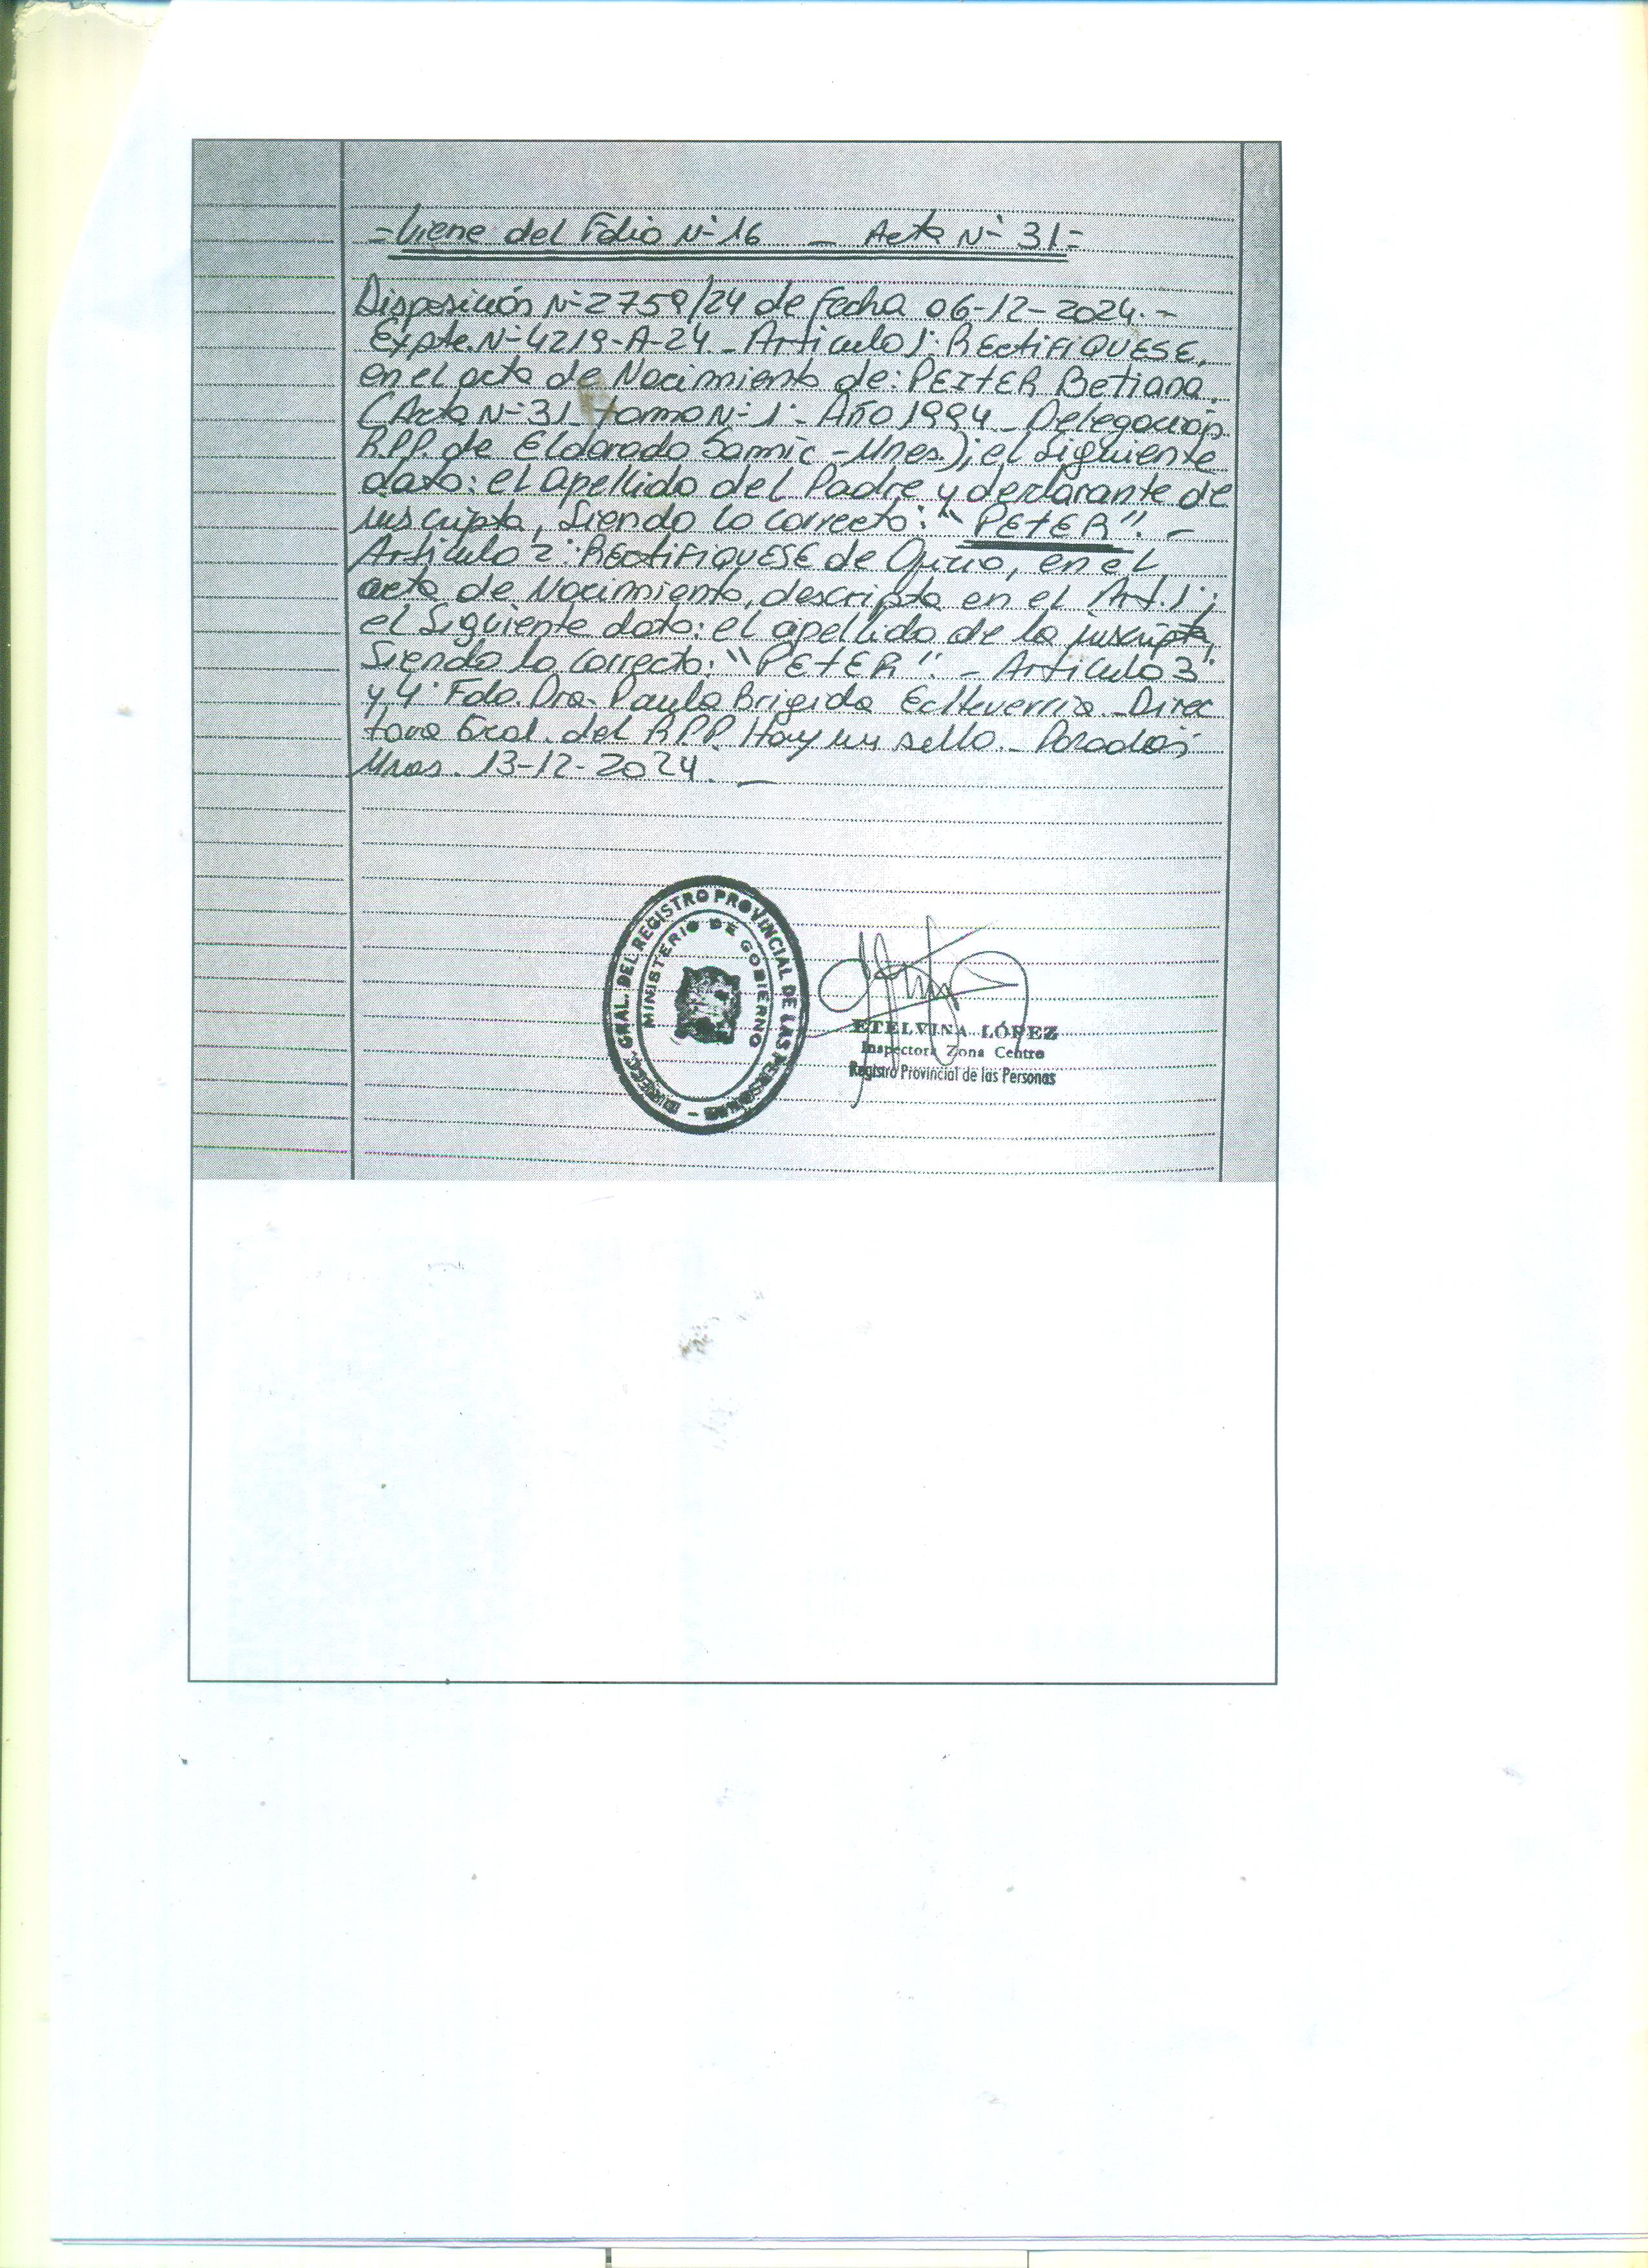 -Viene del Folio N° 16 - Acta N° 31-
Disposición N° 2759/24 de fecha 06-12-2024.-
Expte. N° 4219-A-24 - Articulo 1°: RECtiFIQUESE,
en el acta de Nacimiento de: PEITER Betiana.
(Acta N° 31 - tomo N° 1° - Año 1994 - Delegación
R.P.P. de Eldorado Samic - Mnes.); el Siguiente
dato: el apellido del Padre y declarante de
inscripta, Siendo lo correcto: "PETER". -
Articulo 2°: RECtiFIQUESE de Oficio, en el
acta de Nacimiento, descripta en el Art. 1°;
el Siguiente dato: el apellido de la inscripta,
Siendo lo correcto: "PETER". - Articulo 3°
y 4° Fdo. Dra. Paula Brigida Echeverria - Direc
tora Gral. del R.P.P. Hay un sello. - Posadas
Mnes. 13-12-2024. -
DIRECC. GRAL. DEL REGISTRO PROVINCIAL DE LAS PERSONAS -
MINISTERIO DE GOBIERNO
ETELVINA LÓPEZ
Inspectora Zona Centro
Registro Provincial de las Personas